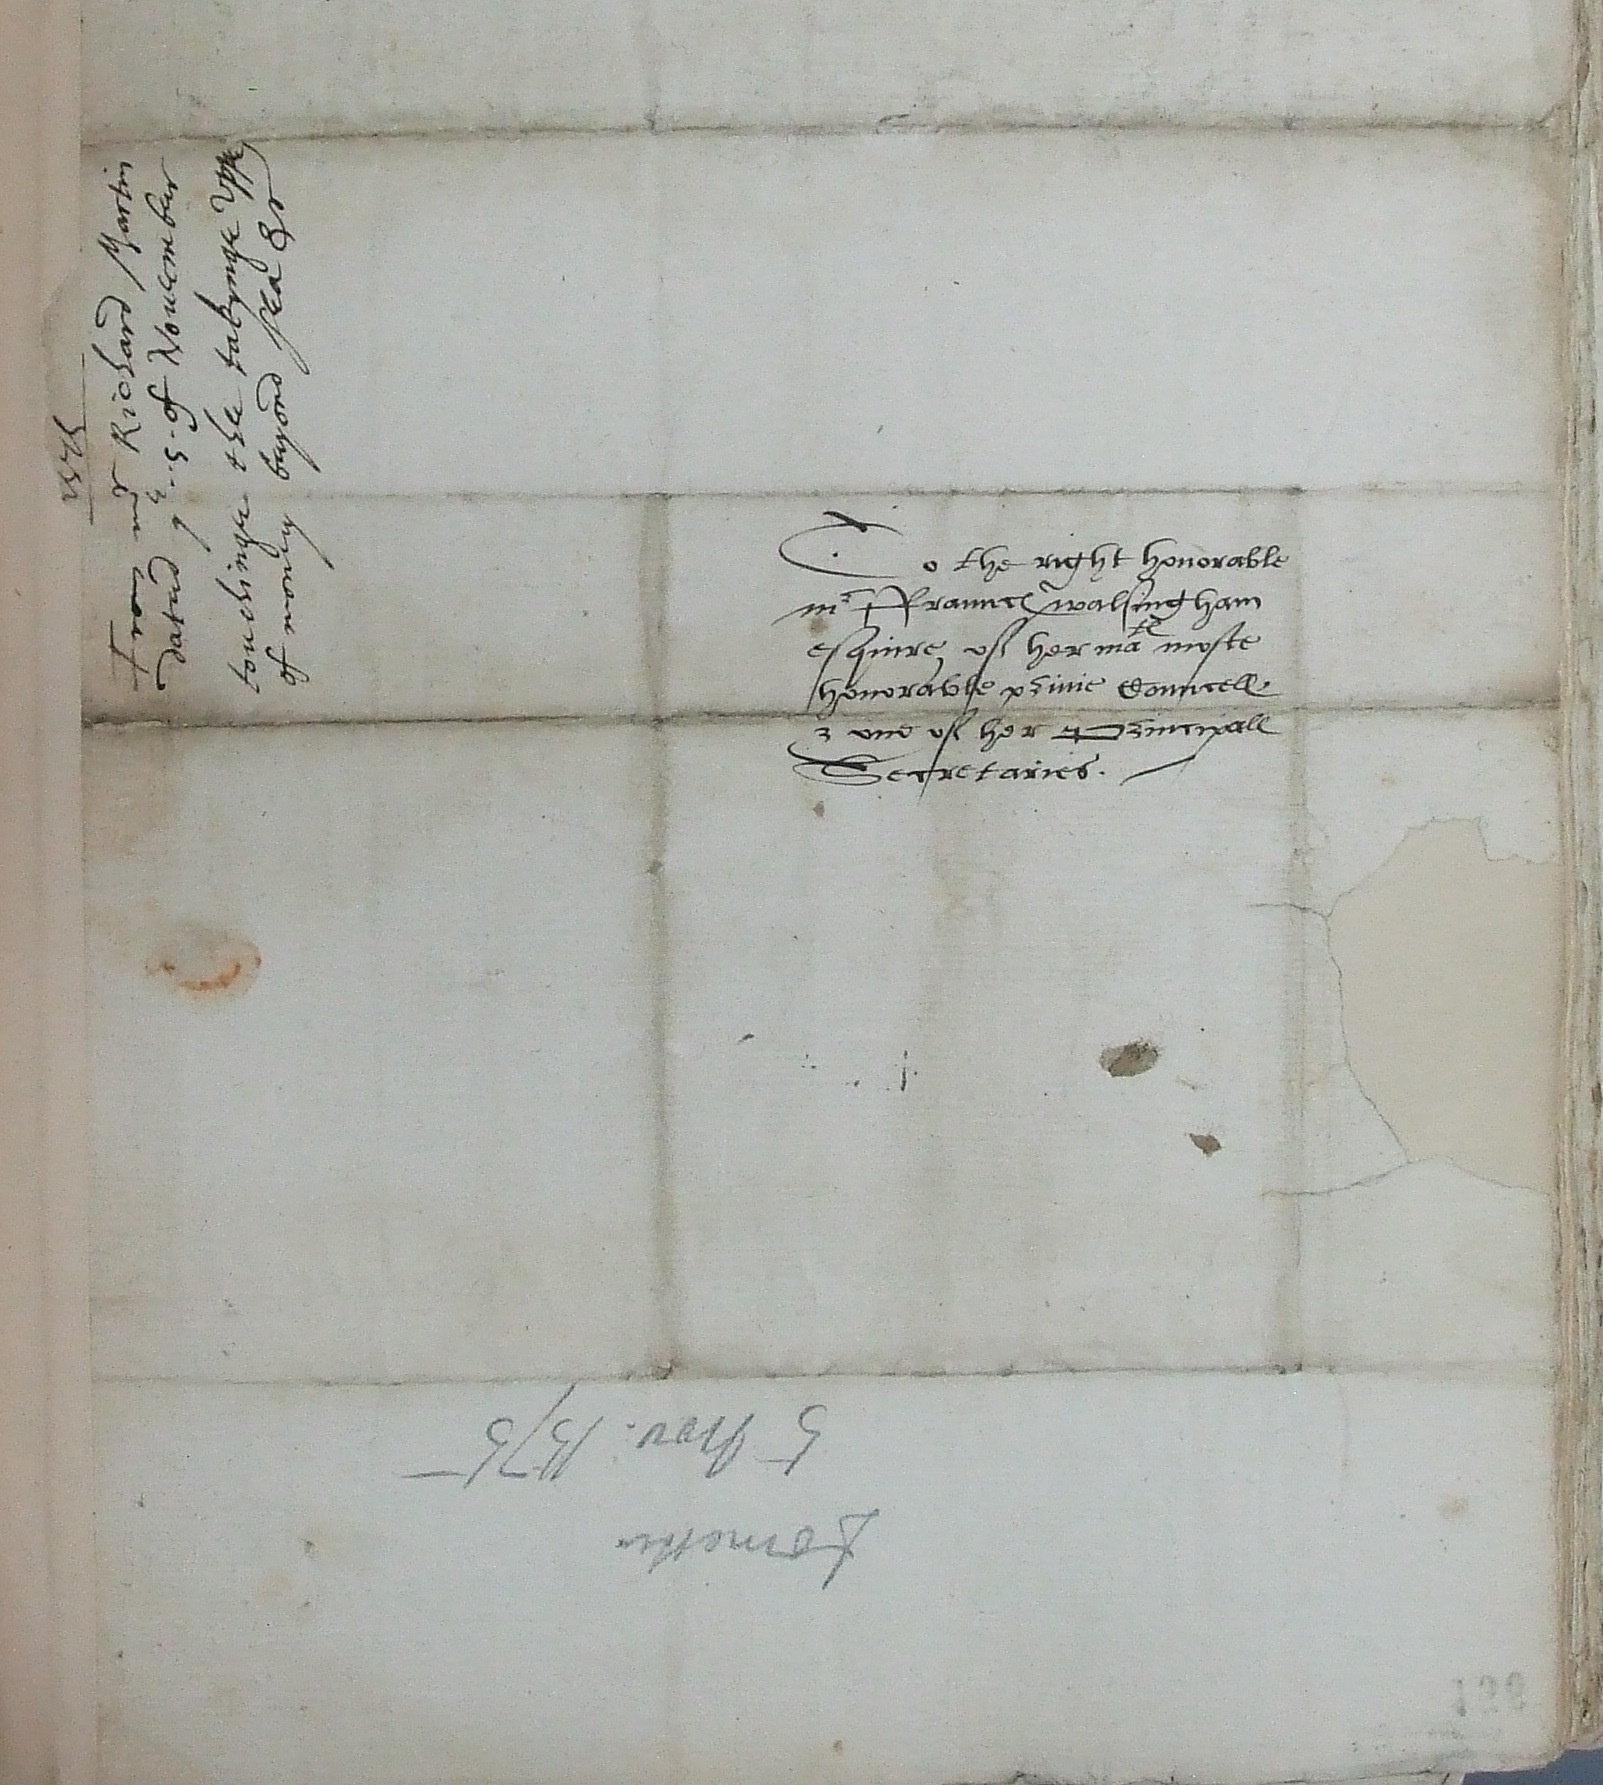 1575
From mr Richard Martin
dated ye .5. of Nouember
touchinge the takynge Vppe
of mony beyond sea &c
To the right honorable
mr Ffraunces walsingham
esquire, of her matie moste
honorable privie Councell
& one of her Principall
Secretaries.
5 Nov. 1575